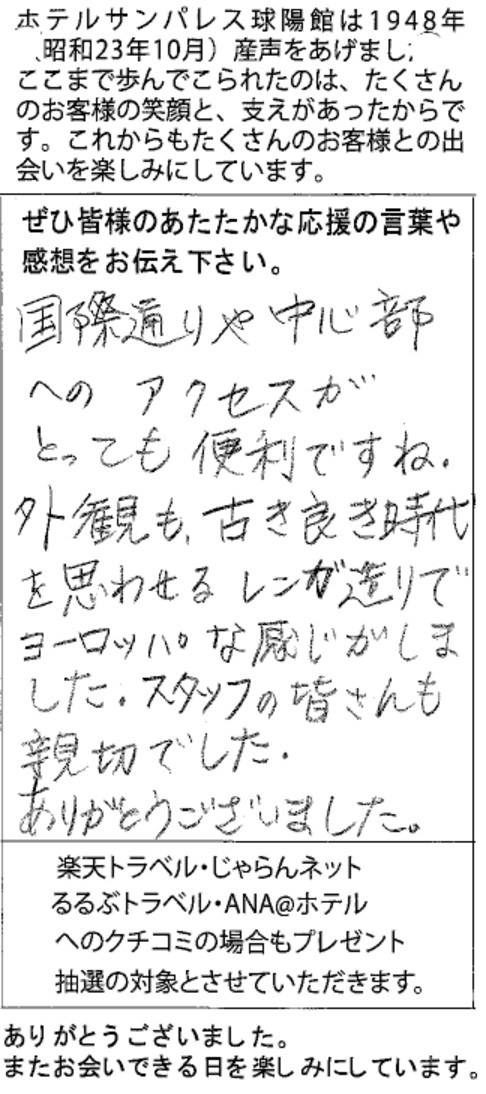 ホテルサンパレス球陽館は1948年
昭和23年10月）産声をあげまし
ここまで歩んでこられたのは、たくさん
のお客様の笑顔と、支えがあったからで
す。これからもたくさんのお客様との出
会いを楽しみにしています。
ぜひ皆様のあたたかな応援の言葉や
感想をお伝え下さい。
国際通りや中心部
への アクセスが
とっても便利ですね.
外観も、古き良き時代
を思わせる レンガ造りで
ヨーロッパな感じがしま
した. スタッフの皆さんも
親切でした.
ありがとうございました。
楽天トラベル・じゃらんネット
るるぶトラベル・ANA@ホテル
へのクチコミの場合もプレゼント
抽選の対象とさせていただきます。
ありがとうございました。
またお会いできる日を楽しみにしています。